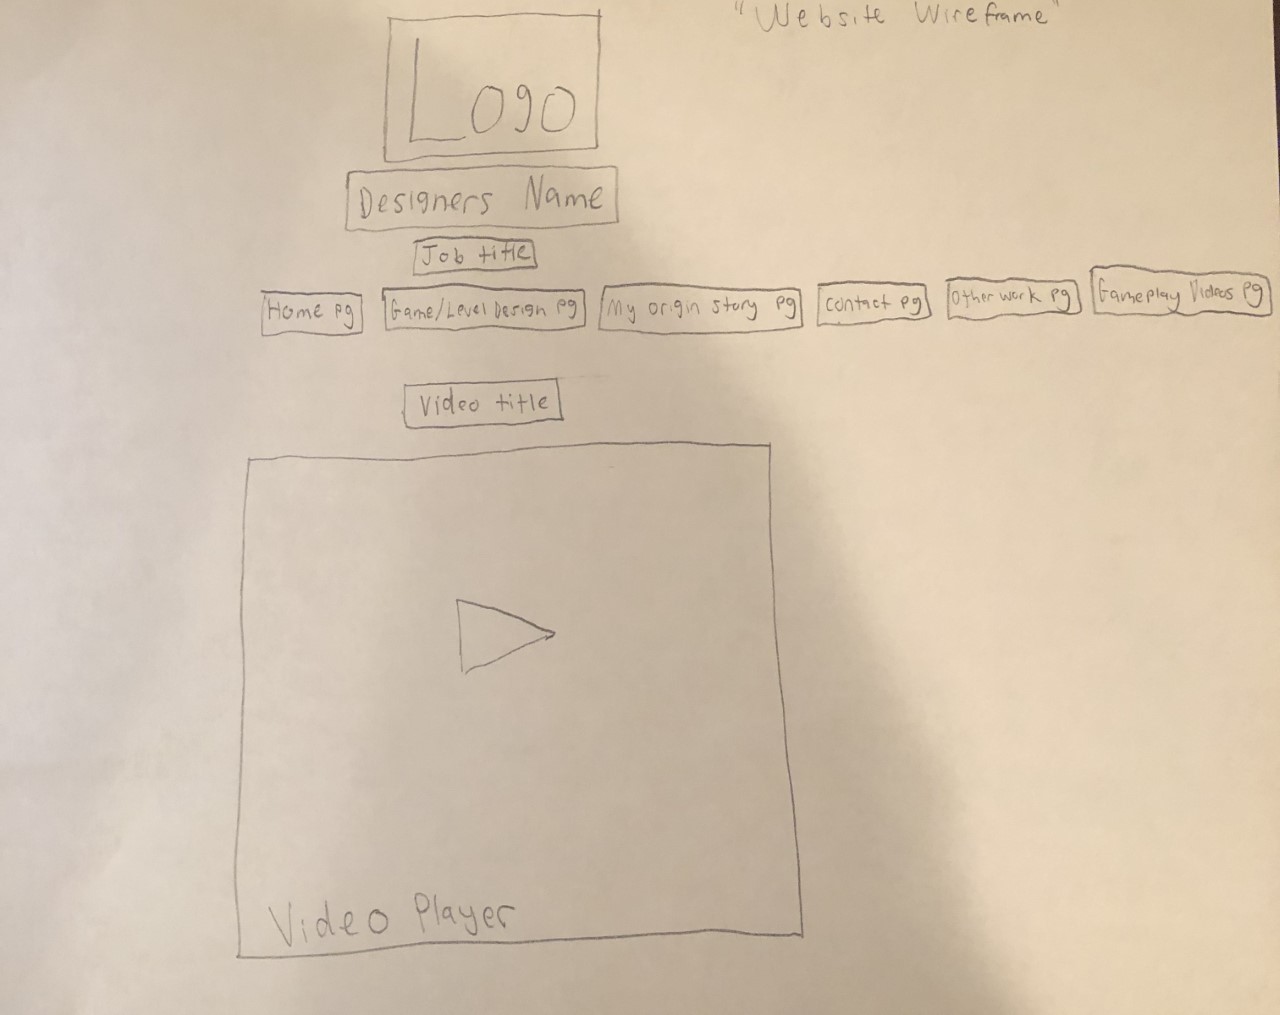 "Website Wireframe"
Logo
Designers Name
Job title
Home pg
Game/Level Design pg
My origin story pg
contact pg
Other work pg
Gameplay Videos pg
Video title
Video Player